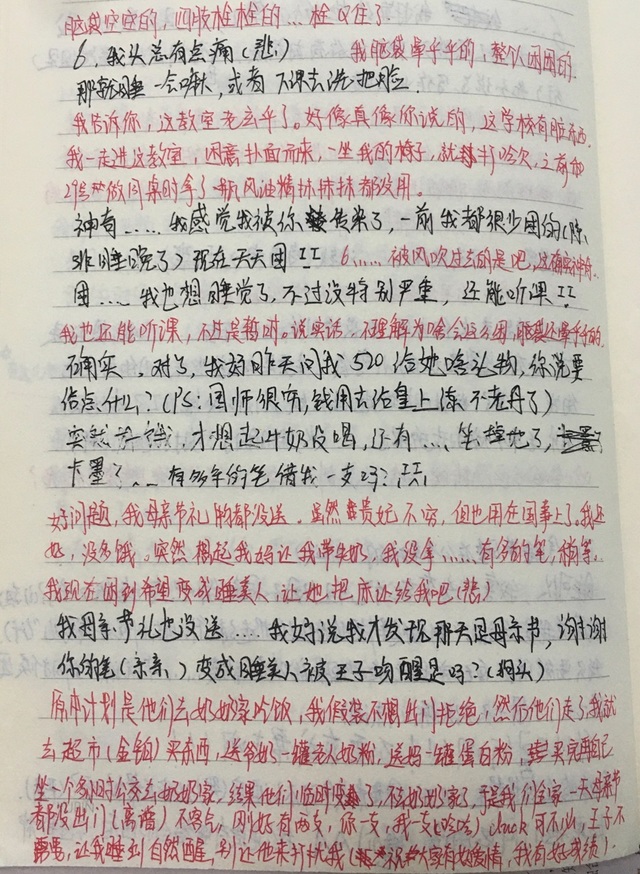 脑袋空空的,四肢栓栓的…栓Q住了
6,我头总有点痛(悲) 我脑袋晕乎乎的,整个人困困的.
那就睡一会啾,或者下课去洗把脸.
我告诉你,这教室老玄乎了。好像真像你说的,这学校有脏东西.
我一走进这教室,困意扑面而来,一坐我的椅子,就打哈欠,之前和
做同桌时拿了一瓶风油精抹抹都没用。
神奇……我感觉我被你传染了,一前我都很少困的(除
非睡晚了)现在天天困II 6……被风吹过去的是吧,这确实神奇.
困…我也想睡觉了,不过没特别严重,还能听课II
我也还能听课,不过是暂时。说实话,不理解为啥会这么困,脑袋还晕乎乎的.
确实…对了,我妈昨天问我520给她啥礼物,你说要
给点什么?(PS:国师很穷,钱用去给皇上炼不老丹了)
突然 才想起牛奶没喝,还有…,笔掉地了,
卡墨了……有多余的笔借我一支吗?II
好问题,我母亲节礼物都没送。虽然贵妃不穷,但也用在国事上了。我还
好,没多饿。突然想起我妈让我带牛奶,我没拿……有多的笔,稍等.
我现在困到希望变成睡美人,让她把床让给我吧(悲)
我母亲节礼也没送…我妈说我才发现那天是母亲节,谢谢
你的笔(亲亲)变成睡美人被王子吻醒是吗?(狗头)
原本计划是他们去奶奶家吃饭,我假装不想出门拒绝,然后他们走了我就
去超市(金铂)买东西,送爷奶一罐老人奶粉,送妈一罐蛋白粉,买完再自己
坐一个多小时公交去奶奶家,结果他们临时变了,不去奶奶家了,于是我们全家一天母亲节
都没出门(离谱)不客气,刚好有两支,你一支,我一支(哈哈)duck可不必,王子不
要,让我睡到自然醒,别让他来打扰我(祝大家有好爱情,我有好成绩).